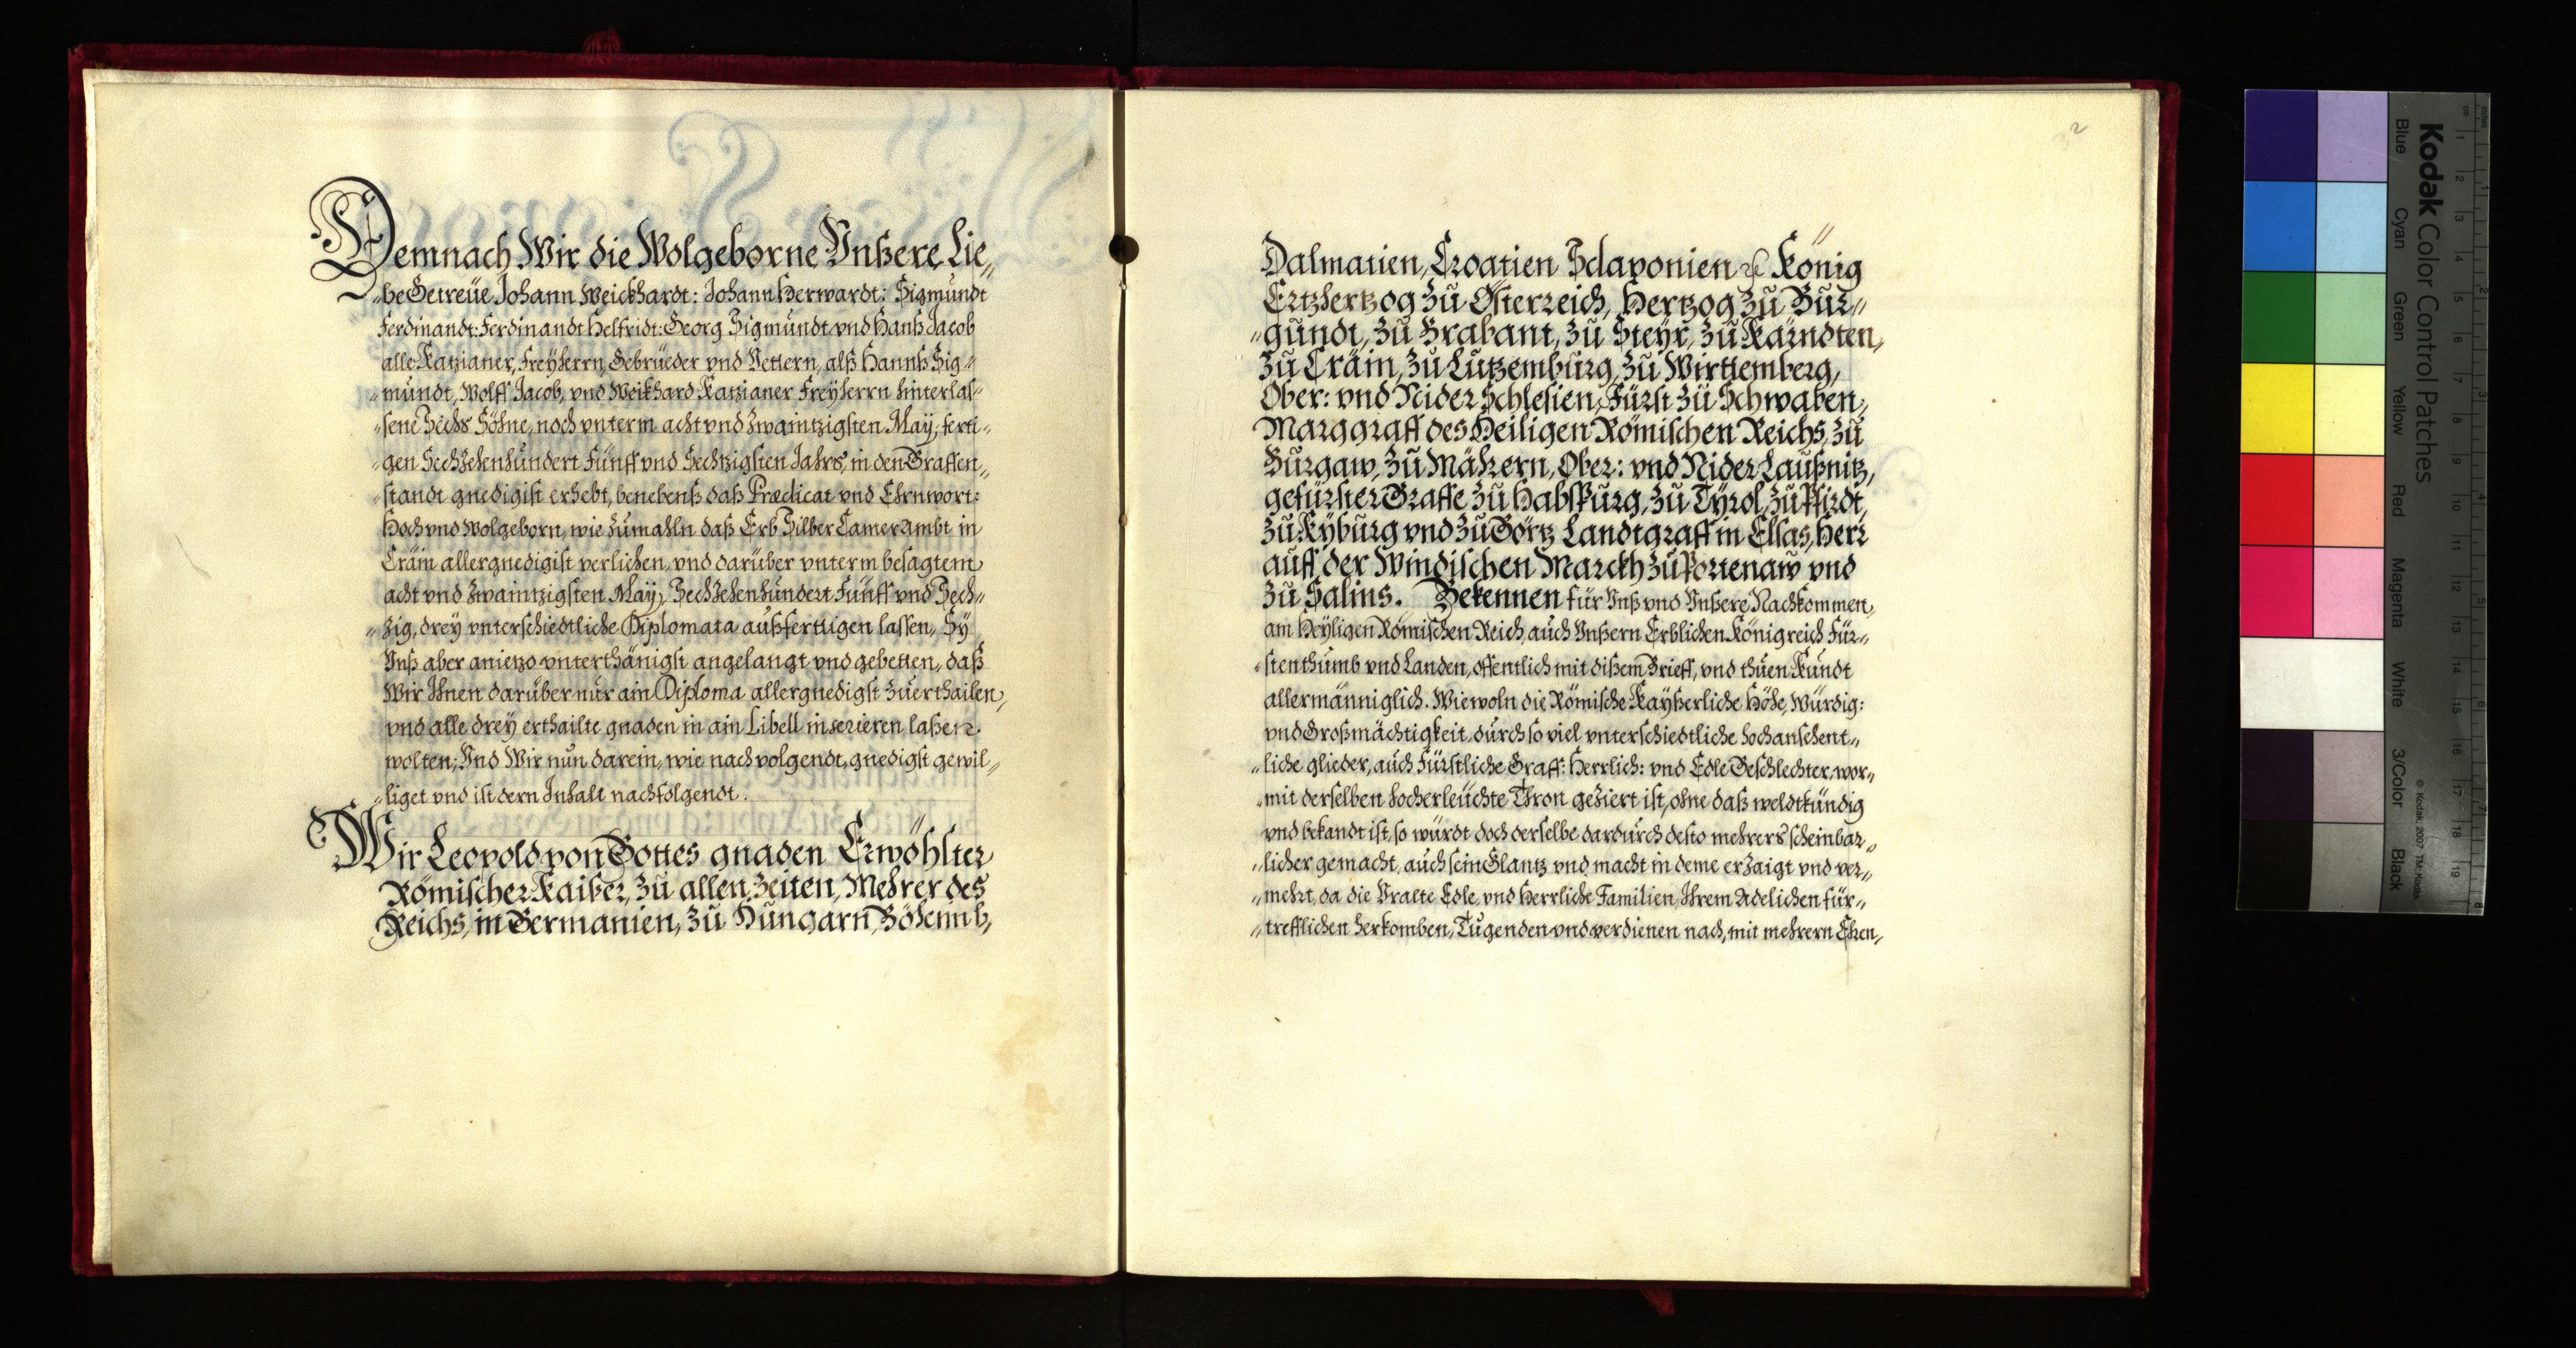 Demnach Wir die Wolgeborne Vnßere Lie„
„be Getreüe Johann Weickhardt: Johann Herwardt: Sigmundt
Ferdinandt: Ferdinandt Helfridt: Georg Sigmundt vnd Hanß Jacob
alle Kazianer, Freyherrn, Gebrüeder vnd Vettern, alß Hannß Sig„
„mundt, Wolff Jacob, vnd Weikhard Kazianer Freyherrn hinterlaß„
„sene Sechs Söhne, noch vnterm acht vnd zwaintzigsten May, ferti„
„gen Sechzehenhundert Fünff vnd Sechtzigsten Jahrs, in den Graffen„
„standt gnedigist erhebt, benebenß daß Prædicat vnd Ehrnwort:
Hoch vnd Wolgeborn, wie zumahln daß Erb Silber Camer Ambt in
Crain allergnedigist verlichen, vnd darüber vnterm besagtem
acht vnd zwaintzigsten May, Sechzehenhundert Fünff vnd Sech„
„zig, drey vnterschiedtliche Diplomata außfertigen lassen, Sÿ
Vnß aber aniezo vnterthänigst angelangt vnd gebetten, daß
Wir Ihnen darüber nur ain Diploma allergnedigst zuerthailen,
vnd alle drey erthailte gnaden in ain Libell inserieren laßen
wolten; Vnd Wir nun darein, wie nachvolgendt, gnedigst gewil„
„liget vnd ist dern Inhalt nachfolgendt.
Wir Leopold von Gottes gnaden Erwöhlter
Römischer Kaißer, zu allen Zeiten, Mehrer des
Reichs, in Germanien, zu Hungarn, Böhemb,
2
Dalmatien, Croatien Sclavonien &c König
Ertzhertzog zu Österreich, Hertzog zu Bur„
„gundt, zu Brabant, zu Steyr, zu Kärndten,
zu Crain, zu Lutzemburg, zu Wirttemberg,
Ober: vnd Nider Schlesien, Fürst zu Schwaben,
Marggraff des Heiligen Römischen Reichs, zu
Burgaw, zu Mährern, Ober: vnd Nider Laußnitz,
gefürster Graffe zu Habspurg, zu Tÿrol, zu Pfirdt,
zu Kÿburg vnd zu Görtz Landtgraff in Elsas, Herr
auff der Windischen Marckh zu Portenaw vnd
zu Salins. Bekennen für Vnß vnd Vnßere Nachkommen,
am Heÿligen Römischen Reich, auch Vnßern Erblichen Königreich Für„
„stenthumb vnd Landen, offentlich mit dißem Brieff, vnd thuen Kundt
allermänniglich. Wiewoln die Römische Kaÿßerliche Höhe, Würdig:
vnd Großmächtigkeit, durch so viel vnterschiedtliche hochansehent„
„liche glieder, auch Fürstliche Graff: Herrlich: vnd Edle Geschlechter, wor„
„mit derselben hocherleüchte Thron geziert ist, ohne daß weldtkündig
vnd bekandt ist, so würdt doch derselbe dardurch desto mehrers scheinbar„
„licher gemacht, auch sein Glantz vnd macht in deme erzaigt vnd ver„
„mehrt, da die Vralte Edle, vnd Herrliche Familien, Ihrem Adelichen für„
„trefflichen herkomben, Tugenden vnd verdienen nach, mit mehrern Ehrn,
Kodak Color Control Patches
Blue
Cyan
Green
Yellow
Red
Magenta
White
3/Color
Black
© Kodak, 2007 TM: Kodak